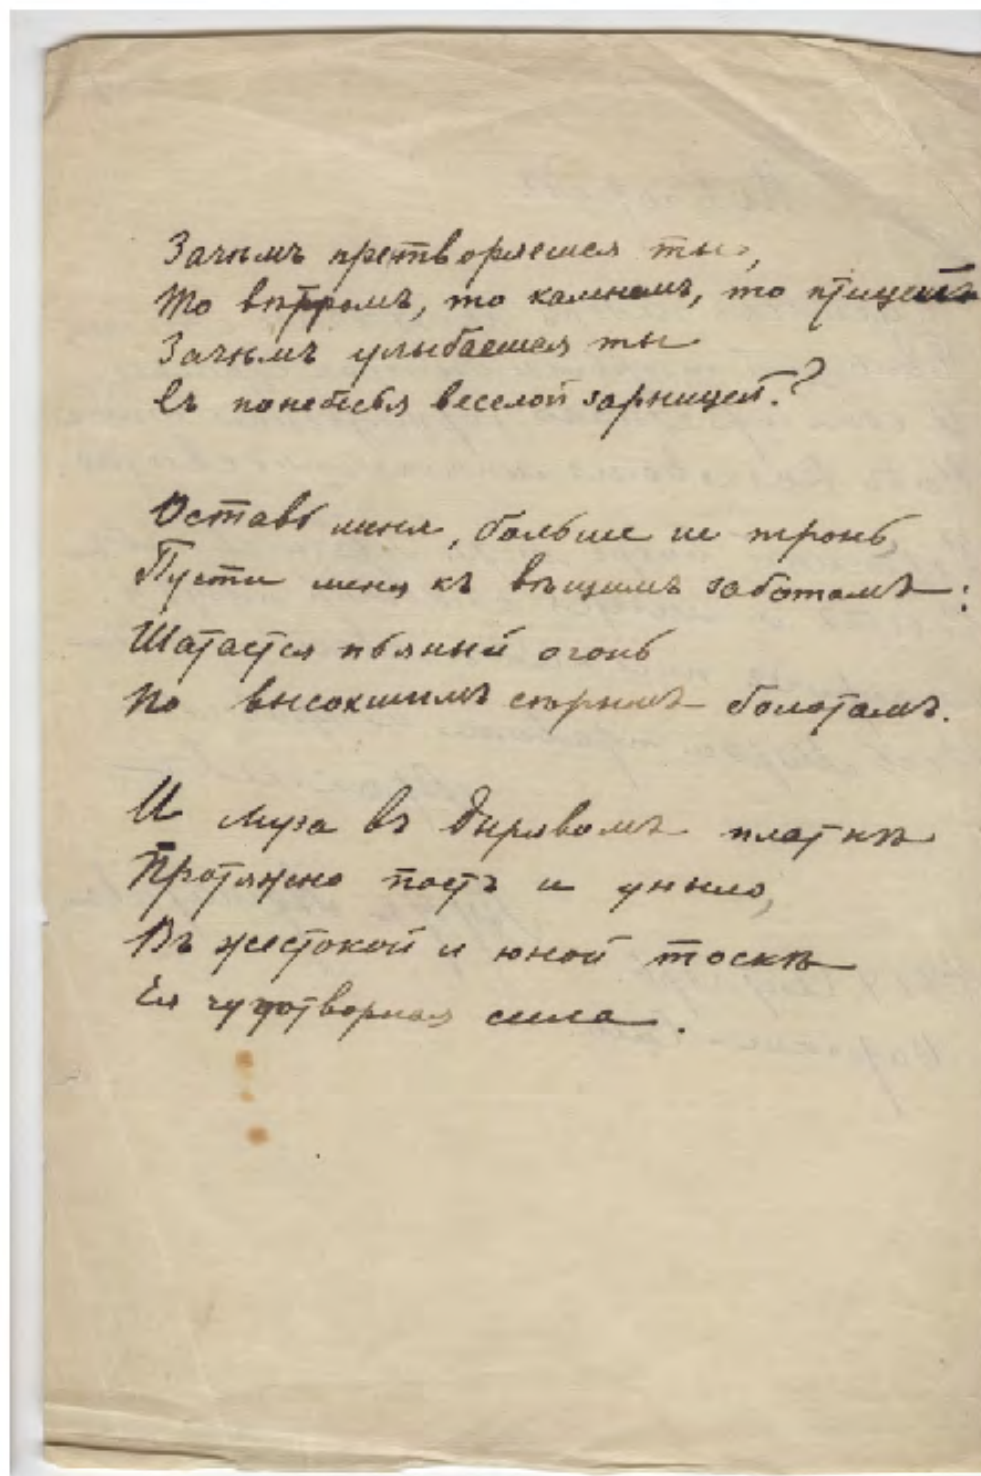 Зачѣмъ претворяешся ты,
То вѣтромъ, то камнемъ, то птицей
Зачѣмъ улыбаешся ты
Съ понебесья веселой зарницей?
Оставь меня, больше не тронь,
Пусти меня къ вѣщимъ заботамъ:
Шатается пьяный огонь
По высохшимъ сѣрымъ болотамъ.
И муза въ дырявомъ платкѣ
Протяжно поетъ и уныло,
Въ жестокой и юной тоскѣ
Ея чудотворная сила.